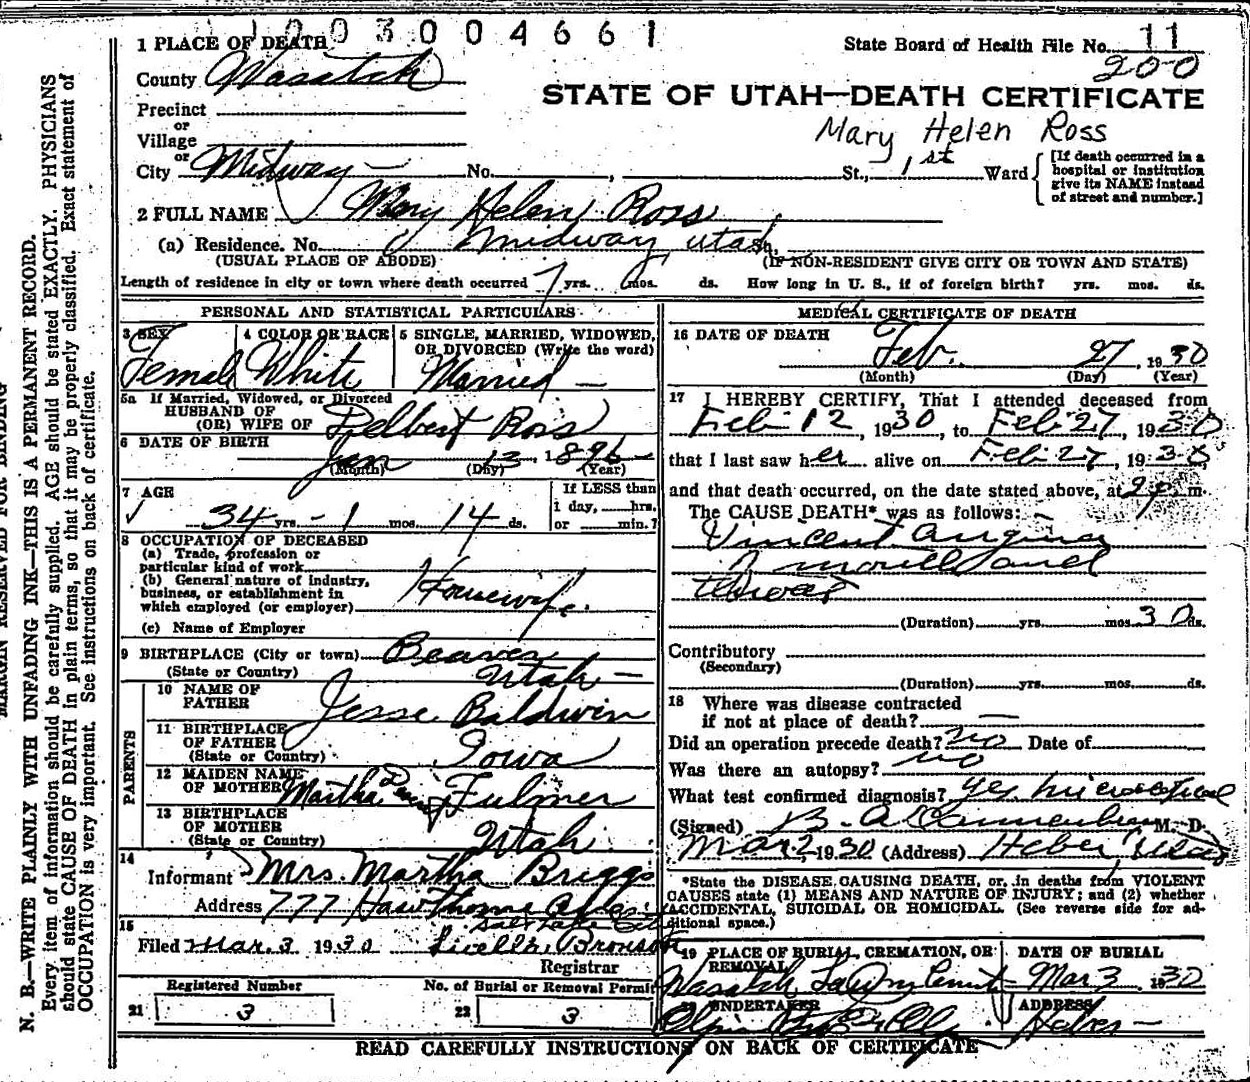 1003004661
1 PLACE OF DEATH
State Board of Health File No. 11
County Wasatch
200
STATE OF UTAH—DEATH CERTIFICATE
Precinct
or
Village
Mary Helen Ross
or
City Midway No. , St., 1st Ward
[If death occurred in a hospital or institution give its NAME instead of street and number.]
2 FULL NAME Mary Helen Ross
(a) Residence. No. Midway Utah,
(USUAL PLACE OF ABODE) (IF NON-RESIDENT GIVE CITY OR TOWN AND STATE)
Length of residence in city or town where death occurred 7 yrs. 6 mos. ds. How long in U. S., if of foreign birth? yrs. mos. ds.
PERSONAL AND STATISTICAL PARTICULARS
3 SEX 4 COLOR OR RACE 5 SINGLE, MARRIED, WIDOWED, OR DIVORCED (Write the word)
Female White Married —
5a If Married, Widowed, or Divorced
HUSBAND OF
(OR) WIFE OF Delbert Ross
6 DATE OF BIRTH
Jan 13, 1896
(Month) (Day) (Year)
7 AGE
If LESS than
1 day, hrs.
or min.?
34 yrs. - 1 mos. 14 ds.
8 OCCUPATION OF DECEASED
(a) Trade, profession or
particular kind of work
(b) General nature of industry,
business, or establishment in
which employed (or employer) Housewife.
(c) Name of Employer
9 BIRTHPLACE (City or town) Beaver
(State or Country) Utah —
PARENTS
10 NAME OF
FATHER Jesse Baldwin
11 BIRTHPLACE
OF FATHER
(State or Country) Iowa
12 MAIDEN NAME
OF MOTHER Martha Fulmer
13 BIRTHPLACE
OF MOTHER
(State or Country) Utah
14
Informant Mrs. Martha Briggs
Address 777 Hawthorne Ave
Salt Lake City
15
Filed Mar. 3 1930 Bronson
Registrar
Registered Number No. of Burial or Removal Permit
21 3 22 3
MEDICAL CERTIFICATE OF DEATH
16 DATE OF DEATH
Feb. 27, 1930
(Month) (Day) (Year)
17 I HEREBY CERTIFY, That I attended deceased from
Feb 12, 1930, to Feb 27, 1930
that I last saw her alive on Feb 27, 1930,
and that death occurred, on the date stated above, at 2 p. m.
The CAUSE DEATH* was as follows:
Vincent angina
mouth and
throat
(Duration) yrs. mos. ds.
Contributory
(Secondary)
(Duration) yrs. mos. ds.
18 Where was disease contracted
if not at place of death? —
Did an operation precede death? no Date of
Was there an autopsy? no
What test confirmed diagnosis? yes microscopical
(Signed) M. D.
Mar 2, 1930 (Address) Heber, Utah
*State the DISEASE CAUSING DEATH, or, in deaths from VIOLENT
CAUSES state (1) MEANS AND NATURE OF INJURY; and (2) whether
ACCIDENTAL, SUICIDAL OR HOMICIDAL. (See reverse side for ad-
ditional space.)
19 PLACE OF BURIAL, CREMATION, OR REMOVAL DATE OF BURIAL
Wasatch Mar 3 1930
20 UNDERTAKER ADDRESS
Heber —
READ CAREFULLY INSTRUCTIONS ON BACK OF CERTIFICATE
MARGIN RESERVED FOR BINDING
N. B.—WRITE PLAINLY WITH UNFADING INK—THIS IS A PERMANENT RECORD.
Every item of information should be carefully supplied. AGE should be stated EXACTLY. PHYSICIANS
should state CAUSE OF DEATH in plain terms, so that it may be properly classified. Exact statement of
OCCUPATION is very important. See instructions on back of certificate.